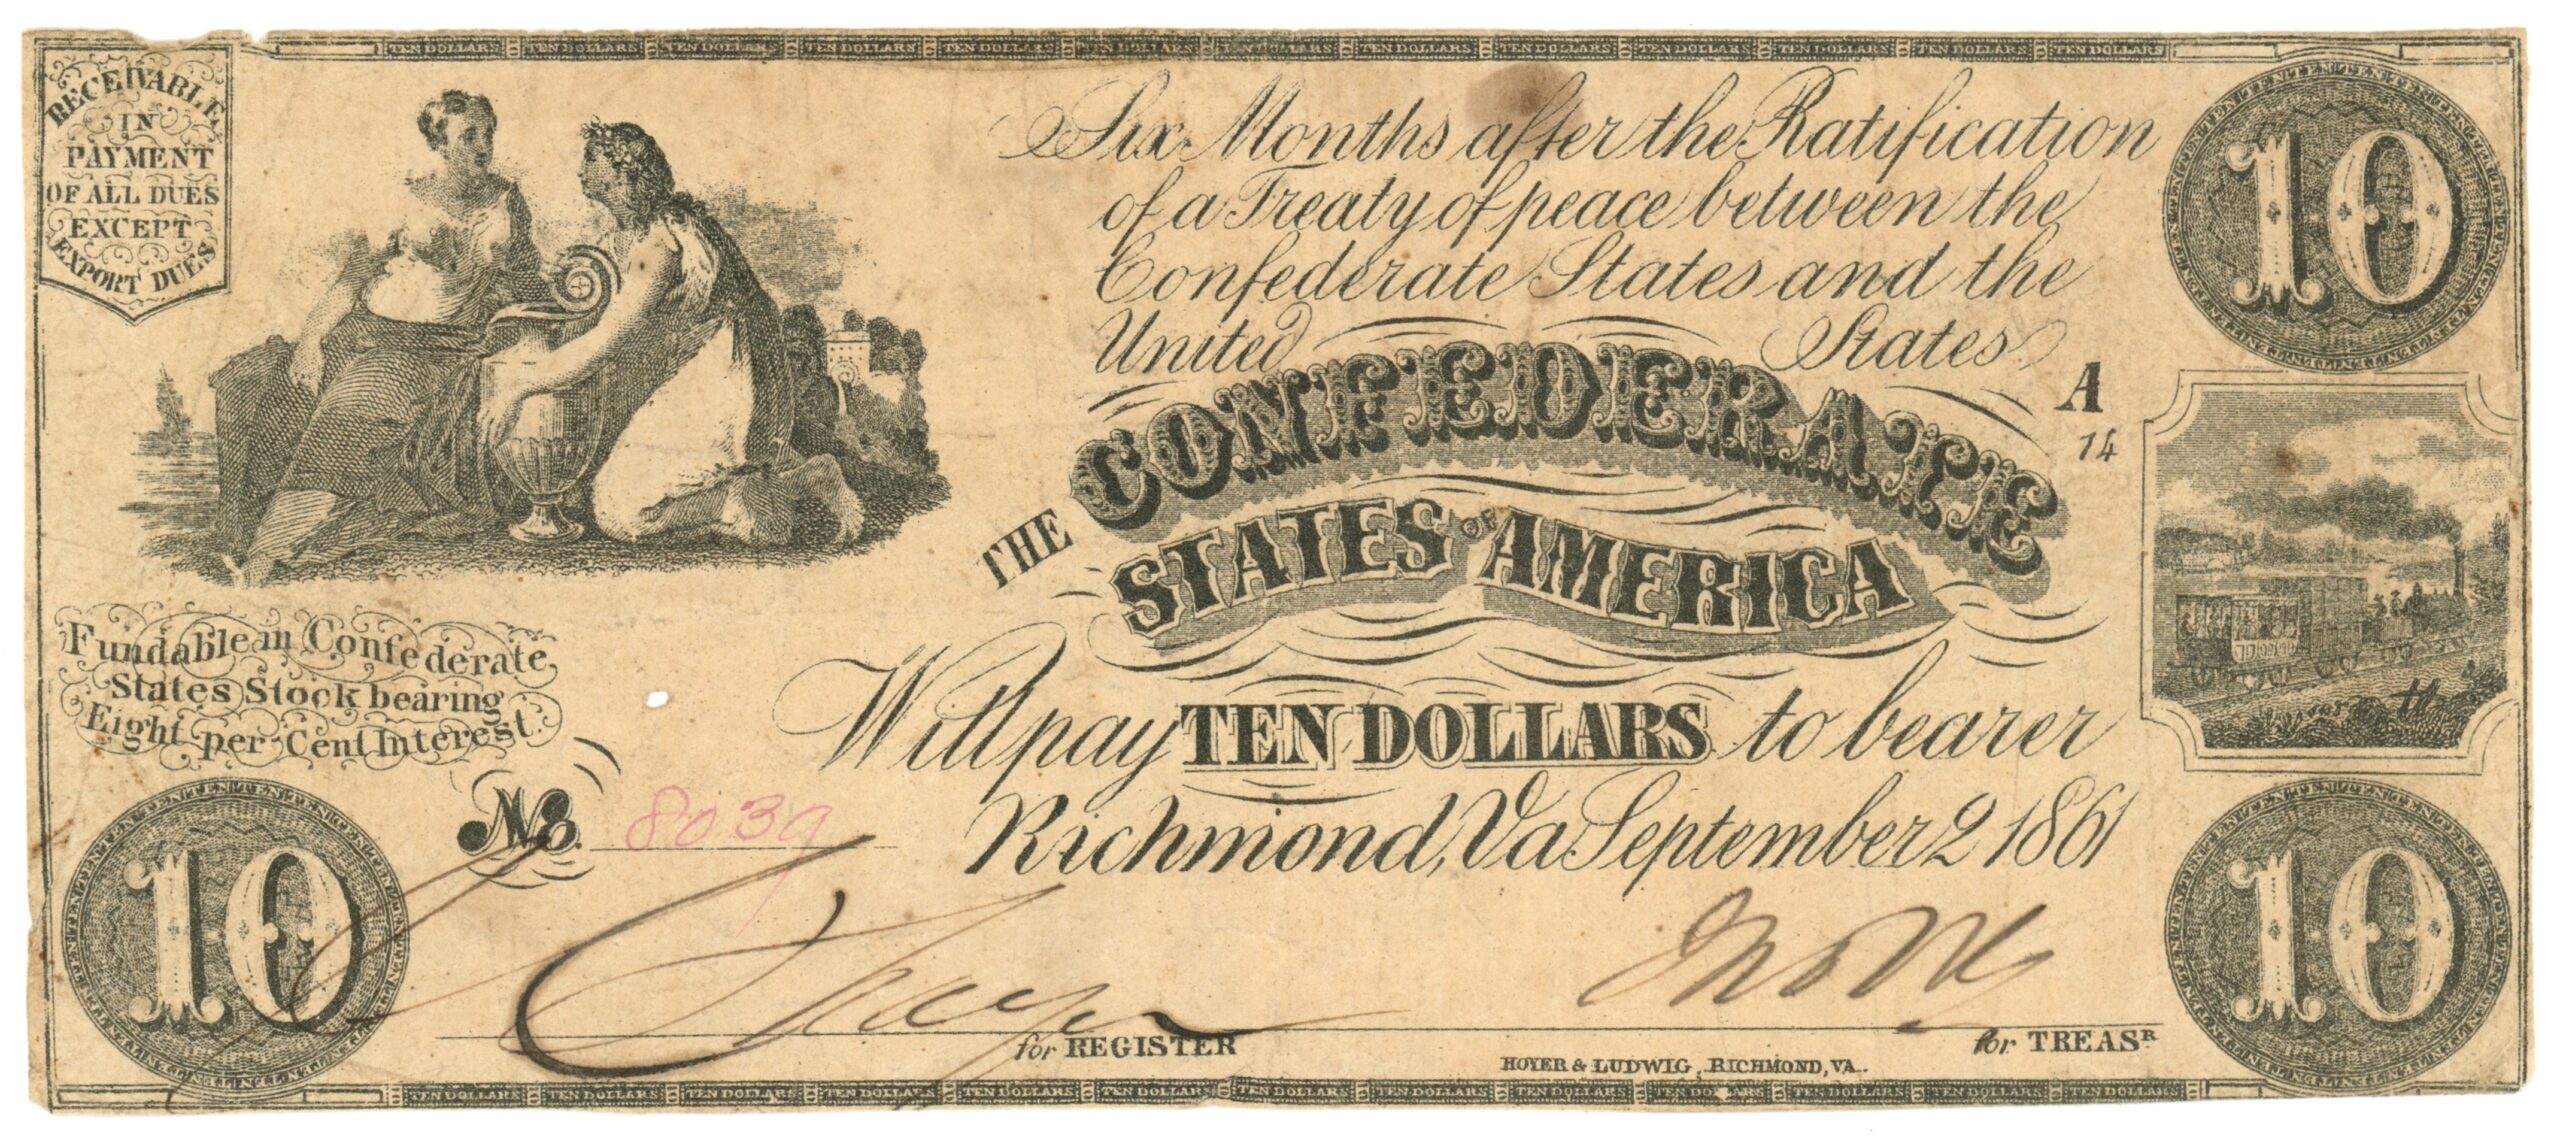 TEN DOLLARS TEN DOLLARS TEN DOLLARS TEN DOLLARS TEN DOLLARS TEN DOLLARS TEN DOLLARS TEN DOLLARS TEN DOLLARS TEN DOLLARS TEN DOLLARS TEN DOLLARS TEN DOLLARS
RECEIVABLE
IN
PAYMENT
OF ALL DUES
EXCEPT
EXPORT DUES
Six Months after the Ratification
of a Treaty of peace between the
Confederate States and the
United States
10
A
14
THE CONFEDERATE
STATES OF AMERICA
Fundable in Confederate
States Stock bearing
Eight per Cent Interest.
Will pay TEN DOLLARS to bearer
No. 8039
Richmond, Va September 2 1861
10
10
for REGISTER
for TREASR
HOYER & LUDWIG, RICHMOND, VA.
TEN DOLLARS TEN DOLLARS TEN DOLLARS TEN DOLLARS TEN DOLLARS TEN DOLLARS TEN DOLLARS TEN DOLLARS TEN DOLLARS TEN DOLLARS TEN DOLLARS TEN DOLLARS TEN DOLLARS